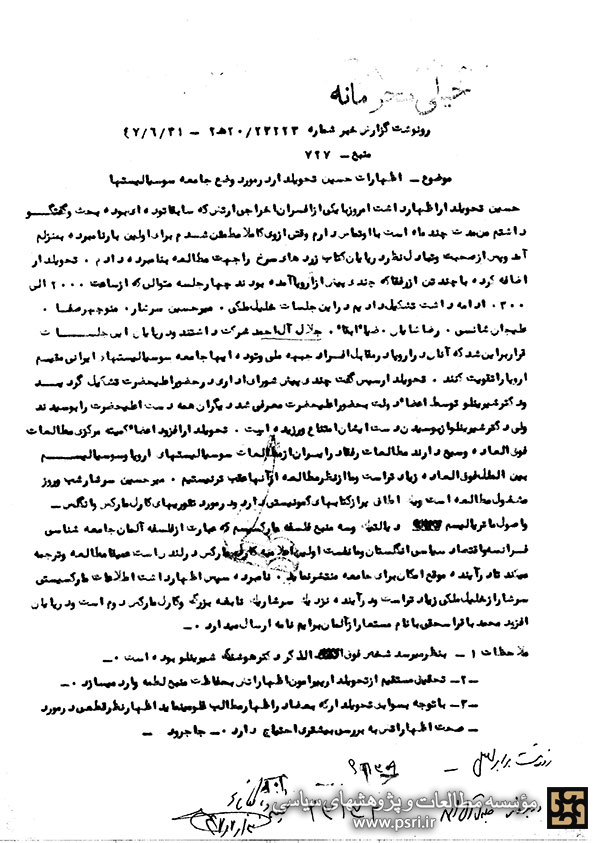 خیلی محرمانه
رونوشت گزارش خبر شماره ۲۰/۲۲۲۲۳ه‍۲ – ۴۷/۶/۳۱
منبع – ۷۲۷
موضوع – اظهارات حسین تحویلدار در مورد وضع جامعه سوسیالیستها
حسین تحویلدار اظهار داشت امروز با یکی از افسران اخراجی ارتش که سابقا توده ای بوده بحث و گفتگو
داشتم من مدت چند ماه است با او تماس دارم وقتی از وی کاملا مطمئن شدم برای اولین بار نامبرده بمنزلم
آمد و پس از صحبت و تبادل نظر در پایان کتاب زرد های سرخ را جهت مطالعه بنامبرده دادم ۰ تحویلدار
اضافه کرد با چند تن از رفقا که چندی پیش از اروپا آمده بودند چهار جلسه متوالی که از ساعت ۲۰۰۰ الی
۳۰۰ ادامه داشت تشکیل دادیم در این جلسات خلیل ملکی ۰ میرحسین سرشار ۰ منوچهر صفا ۰
علیجان شانسی ۰ رضا شایان ۰ ضیاء ۰ جلال آل احمد شرکت داشتند و در پایان این جلسات
قرار بر این شد که آنان در اروپا در مقابل افراد جبهه ملی و توده ایها جامعه سوسیالیستهای ایرانی مقیم
اروپا را تقویت کنند ۰ تحویلدار سپس گفت چندی پیش شورای اداری در حضور اعلیحضرت تشکیل گردید
و دکتر شیرینلو توسط اعضاء دولت بحضور اعلیحضرت معرفی شد دیگران همه دست اعلیحضرت را بوسیدند
ولی دکتر شیرینلو از بوسیدن دست ایشان امتناع ورزیده است ۰ تحویلدار افزود اعضاء کمیته مرکزی مطالعات
فوق العاده وسیع دارند مطالعات رفقا در ایران از مطالعات سوسیالیستهای اروپا و سوسیالیسم
بین المللی فوق العاده زیادتر است و ما از نظر مطالعه از آنها عقب تر نیستیم ۰ میرحسین سرشار شب و روز
مشغول مطالعه است و اطاقی پر از کتابهای کمونیستی دارد و در مورد تئوریهای کارل مارکس و انگلس –
و اصول ماتریالیسم و سه منبع فلسفه مارکسیسم که عبارت از فلسفه آلمان جامعه شناسی
فرانسه و اقتصاد سیاسی انگلستان و مانفست اولین اعلامیه کارل مارکس در لندن است عمیقا مطالعه و ترجمه
میکند تا در آینده موقع امکان برای جامعه منتشر نماید ۰ نامبرده سپس اظهار داشت اطلاعات مارکسیستی
سرشار از خلیل ملکی زیادتر است و در آینده نزدیک سرشار یک نابغه بزرگ و کارل مارکس دوم است و در پایان
افزود محمد باقر اسحقی با نام مستعار از آلمان برایم نامه ارسال میدارد ۰ –
ملاحظات ۱ – بنظر میرسد شخص فوق الذکر دکتر هوشنگ شیرینلو بوده است ۰ –
–۲– تحقیق مستقیم از تحویلدار پیرامون اظهاراتش بحفاظت منبع لطمه وارد میسازد ۰ –
–۳– با توجه بسوابق تحویلدار که بعضا در اظهار مطالب غلو مینماید اظهار نظر قطعی در مورد
صحت اظهاراتش به بررسی بیشتری احتیاج دارد ۰ – جاجرود –
رونوشت برابر اصل –
موسسه مطالعات و پژوهشهای سیاسی
www.psri.ir